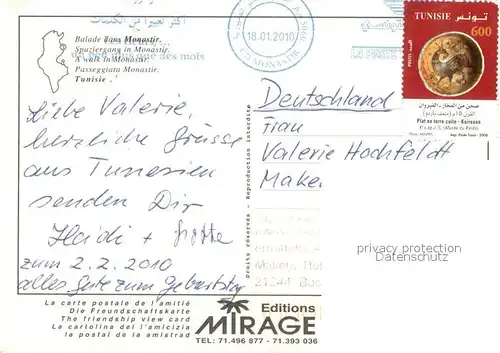 أكثر تعبير من الكلمات
Balade dans Monastir.
Spaziergang in Monastir.
A walk in Monastir.
Passeggiata Monastir.
Tunisie.
des mots
18.01.2010
MONASTIR
LA POSTE
TUNISIE تونس
600
صحن من الفخار - القيروان
Plat en terre cuite - Kairouan
Liebe Valerie,
herzliche Grüsse
aus Tunesien
senden Dir
Haidi +
zum 2.2.2010
alles Gute zum Geburtstag
Deutschland
Frau
Valerie Hochfeldt
Make
Droits réservés - Reproduction interdite
21244 Buc
privacy protection
Datenschutz
La carte postale de l'amitié
Die Freundschaftskarte
The friendship view card
La cartolina del l'amicizia
la postal de la amistrad
Editions
MIRAGE
TEL: 71.496 877 - 71.393 036